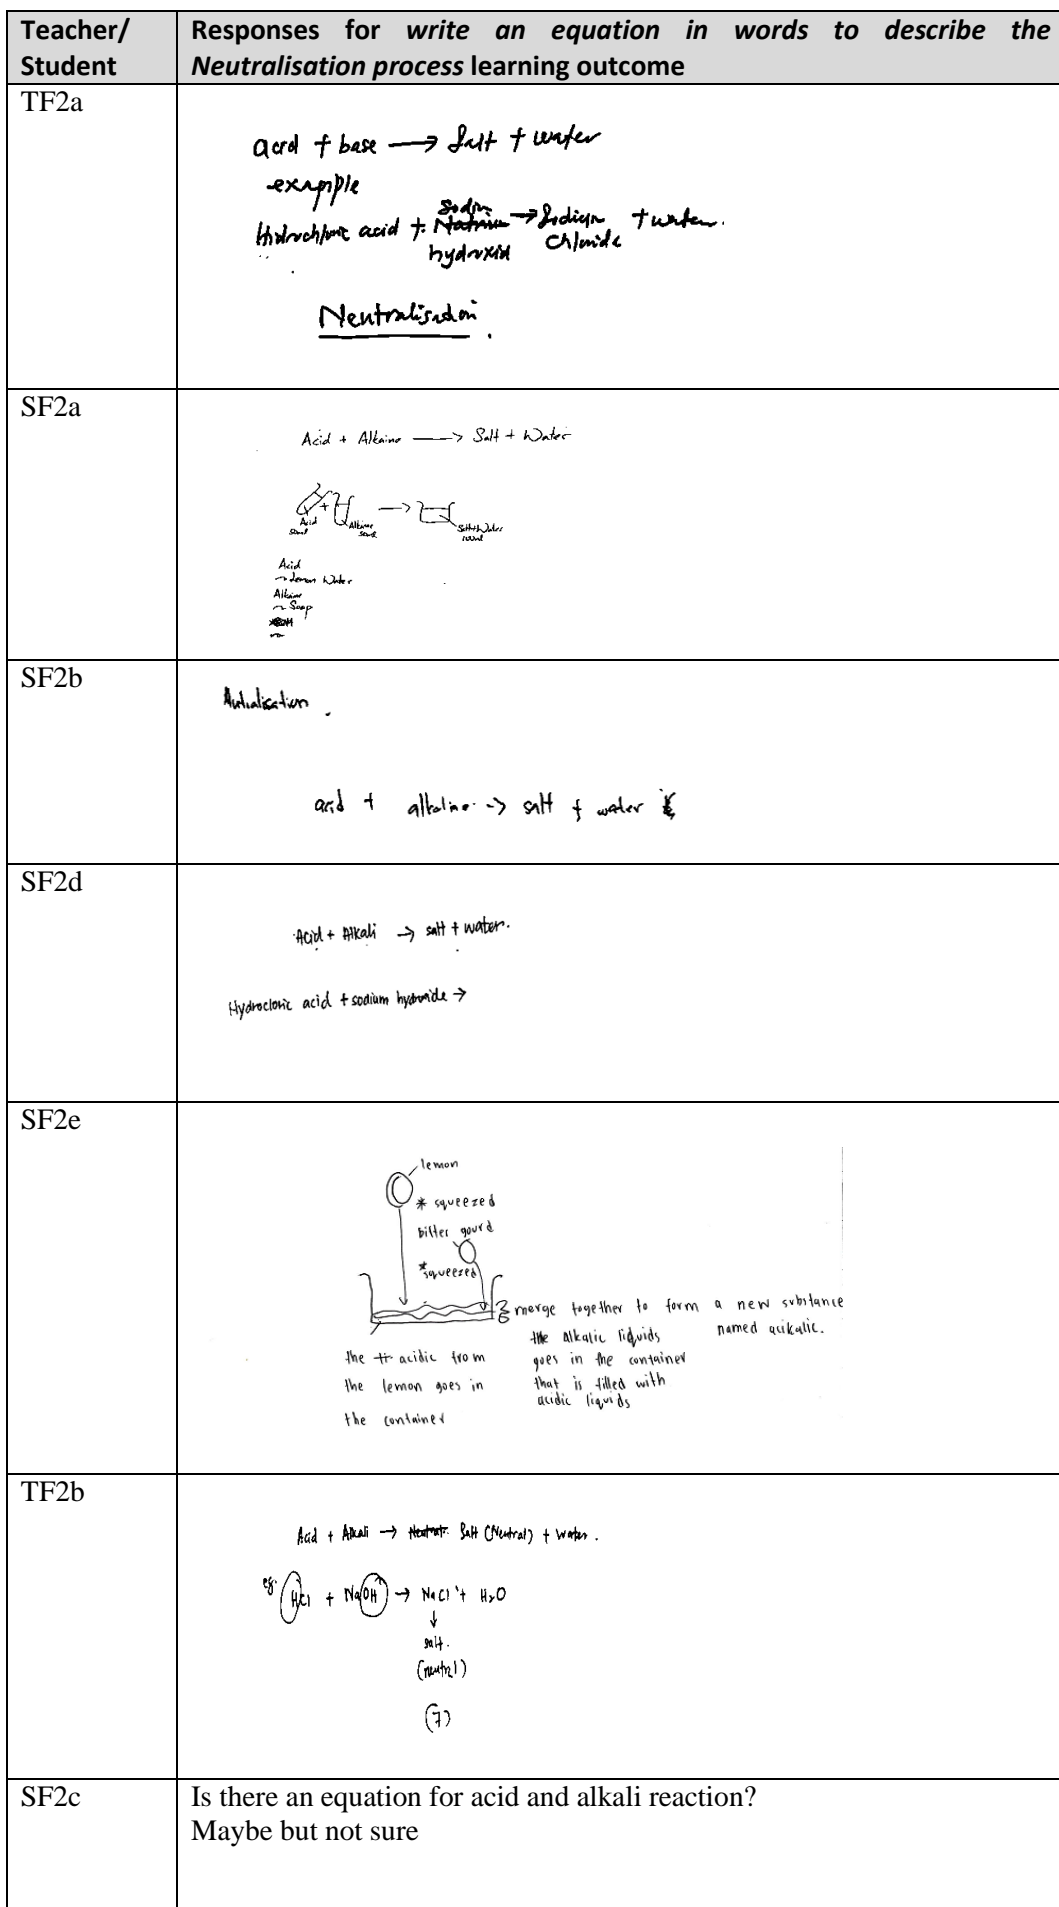 Teacher/ Student
Responses for write an equation in words to describe the
Neutralisation process learning outcome
TF2a
acid + base → Salt + water
example
Hydrochloric acid + sodium hydroxid → Sodium Chloride + water.
Neutralisation.
SF2a
Acid + Alkaine → Salt + Water
Acid 50ml + Alkaine 50ml → Salt + Water 100ml
Acid
→ Lemon Water
Alkaine
→ Soap
SF2b
acid + alkaline → salt + water
SF2d
Acid + Alkali → salt + water.
Hydrocloric acid + sodium hydroxide →
SF2e
lemon
* squeezed
bitter gourd
* squeezed
merge together to form a new substance
named acikalic.
the alkalic liquids
goes in the container
that is filled with
acidic liquids
the acidic from
the lemon goes in
the container
TF2b
Acid + Alkali → Salt (Neutral) + water.
eg. HCl + NaOH → NaCl + H2O
↓
salt.
(neutral)
(7)
SF2c
Is there an equation for acid and alkali reaction?
Maybe but not sure